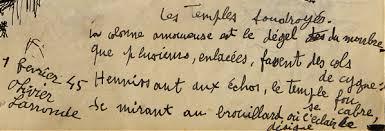 Les Temples foudroyés.
la colonne amoureuse est le dégel du marbre
que plusieurs, enlacées, fassent des cols
de cygne :
Hennissant aux échos, le temple fou
se cabre,
Se mirant au brouillard où l'éclair le
désigne
1 février 45
Olivier
Larronde